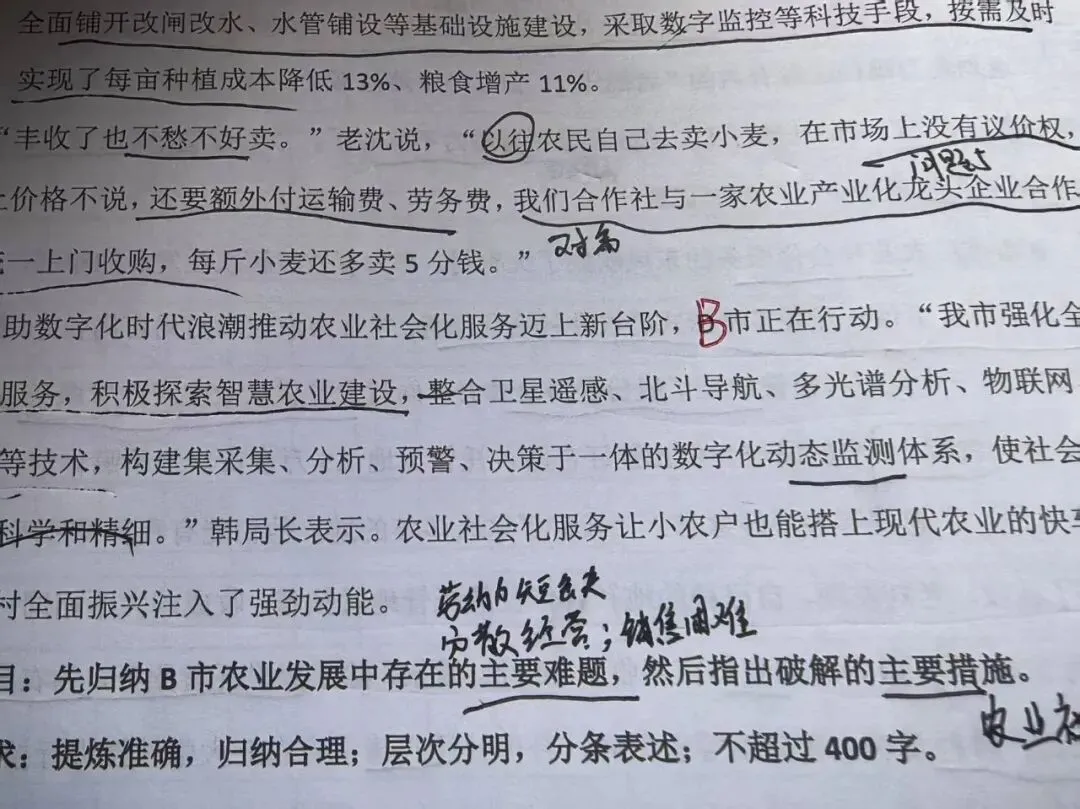 全面铺开改闸改水、水管铺设等基础设施建设，采取数字监控等科技手段，按需及时
实现了每亩种植成本降低 13%、粮食增产 11%。
“丰收了也不愁不好卖。”老沈说，“以往农民自己去卖小麦，在市场上没有议价权，
问题
上价格不说，还要额外付运输费、劳务费，我们合作社与一家农业产业化龙头企业合作
对策
一上门收购，每斤小麦还多卖 5 分钱。”
助数字化时代浪潮推动农业社会化服务迈上新台阶，B市正在行动。“我市强化全
服务，积极探索智慧农业建设，整合卫星遥感、北斗导航、多光谱分析、物联网
等技术，构建集采集、分析、预警、决策于一体的数字化动态监测体系，使社会
科学和精细。”韩局长表示。农业社会化服务让小农户也能搭上现代农业的快
村全面振兴注入了强劲动能。
劳动力短缺
分散经营；销售困难
目：先归纳 B 市农业发展中存在的主要难题，然后指出破解的主要措施。
农业社
求：提炼准确，归纳合理；层次分明，分条表述；不超过 400 字。